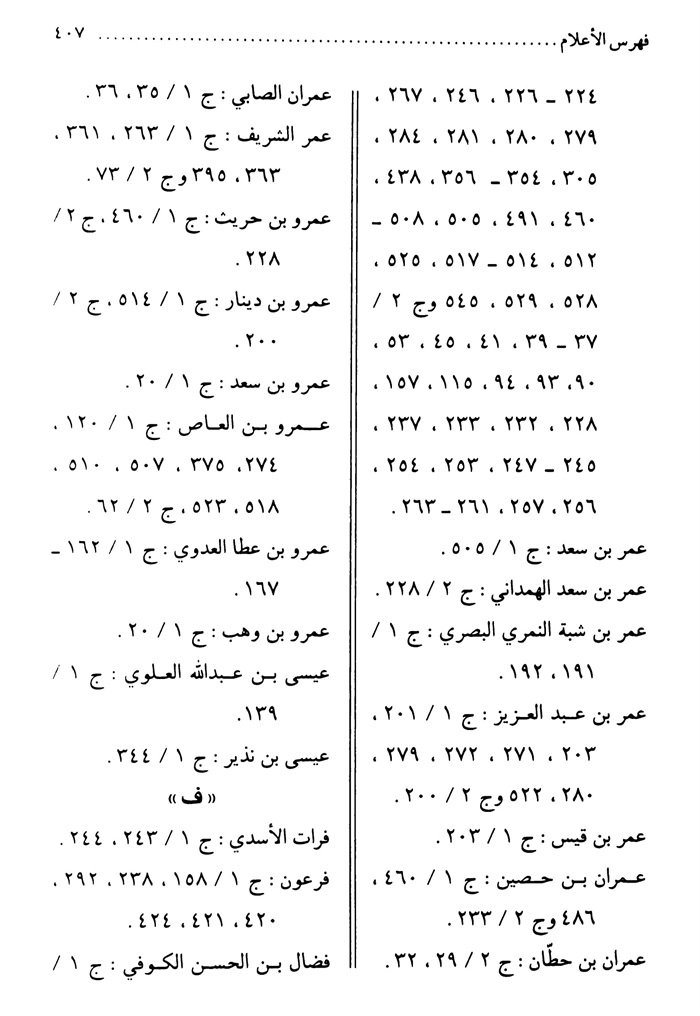 فهرس الأعلام ............................................................ ٤٠٧
٢٢٤ ــ ٢٢٦ ، ٢٤٦ ، ٢٦٧ ،
٢٧٩ ، ٢٨٠ ، ٢٨١ ، ٢٨٤ ،
٣٠٥ ، ٣٥٤ ــ ٣٥٦ ، ٤٣٨ ،
٤٦٠ ، ٤٩١ ، ٥٠٥ ، ٥٠٨ ــ
٥١٢ ، ٥١٤ ــ ٥١٧ ، ٥٢٥ ،
٥٢٨ ، ٥٢٩ ، ٥٤٥ وج ٢ /
٣٧ ــ ٣٩ ، ٤١ ، ٤٥ ، ٥٣ ،
٩٠ ، ٩٣ ، ٩٤ ، ١١٥ ، ١٥٧ ،
٢٢٨ ، ٢٣٢ ، ٢٣٣ ، ٢٣٧ ،
٢٤٥ ــ ٢٤٧ ، ٢٥٣ ، ٢٥٤ ،
٢٥٦ ، ٢٥٧ ، ٢٦١ ــ ٢٦٣ .
عمر بن سعد : ج ١ / ٥٠٥ .
عمر بن سعد الهمداني : ج ٢ / ٢٢٨ .
عمر بن شبة النمري البصري : ج ١ /
١٩١ ، ١٩٢ .
عمر بن عبد العزيز : ج ١ / ٢٠١ ،
٢٠٣ ، ٢٧١ ، ٢٧٢ ، ٢٧٩ ،
٢٨٠ ، ٥٢٢ وج ٢ / ٢٠٠ .
عمر بن قيس : ج ١ / ٢٠٣ .
عمران بن حصين : ج ١ / ٤٦٠ ،
٤٨٦ وج ٢ / ٢٣٣ .
عمران بن حطّان : ج ٢ / ٢٩ ، ٣٢ .
عمران الصابي : ج ١ / ٣٥ ، ٣٦ .
عمر الشريف : ج ١ / ٢٦٣ ، ٣٦١ ،
٣٦٣ ، ٣٩٥ وج ٢ / ٧٣ .
عمرو بن حريث : ج ١ / ٤٦٠ ، ج ٢ /
٢٢٨ .
عمرو بن دينار : ج ١ / ٥١٤ ، ج ٢ /
٢٠٠ .
عمرو بن سعد : ج ١ / ٢٠ .
عمرو بن العاص : ج ١ / ١٢٠ ،
٢٧٤ ، ٣٧٥ ، ٥٠٧ ، ٥١٠ ،
٥١٨ ، ٥٢٣ ، ج ٢ / ٦٢ .
عمرو بن عطا العدوي : ج ١ / ١٦٢ ــ
١٦٧ .
عمرو بن وهب : ج ١ / ٢٠ .
عيسى بن عبدالله العلوي : ج ١ /
١٣٩ .
عيسى بن نذير : ج ١ / ٣٤٤ .
« ف »
فرات الأسدي : ج ١ / ٢٤٣ ، ٢٤٤ .
فرعون : ج ١ / ١٥٨ ، ٢٣٨ ، ٢٩٢ ،
٤٢٠ ، ٤٢١ ، ٤٢٤ .
فضال بن الحسن الكوفي : ج ١ /